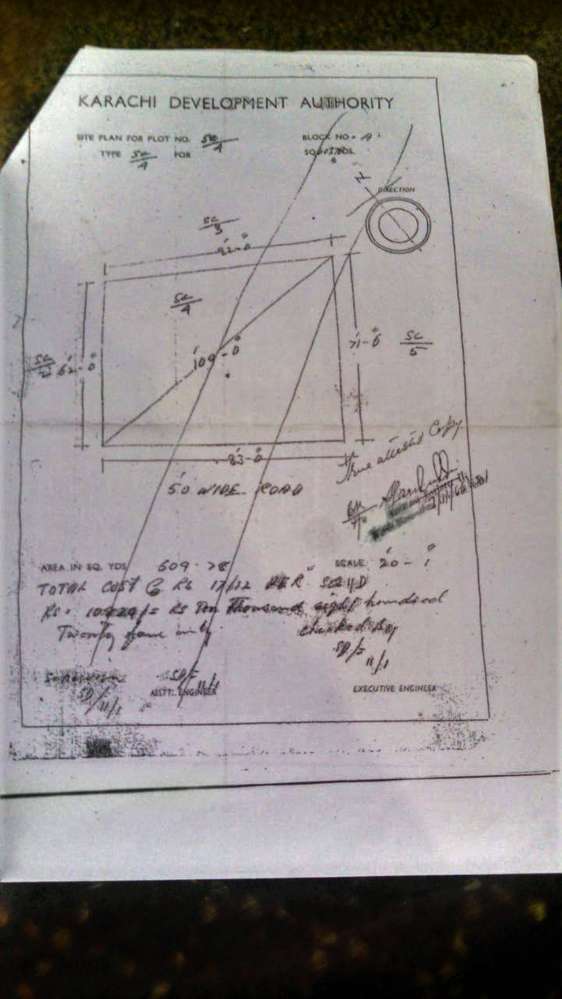 KARACHI DEVELOPMENT AUTHORITY
SITE PLAN FOR PLOT NO. SC/4 BLOCK NO. "A"
TYPE SC/4 FOR
DIRECTION
N
SC/3
SC/4
109'-0"
SC/2 62'-0"
71'-0" SC/5
83'-0"
50 WIDE ROAD
True attested Copy
AREA IN SQ. YDS. 609.78 SCALE 20'-1"
TOTAL COST @ Rs 17/12 PER SQ YD
Rs. Rs Ten Thousand eight hundred
Twenty only checked by
SD/= 11/1
SD/= 11/1
SD/= 11/1
ASTT. ENGINEER EXECUTIVE ENGINEER